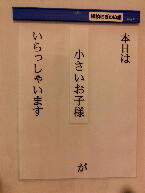 本日は
小さいお子様
が
いらっしゃいます